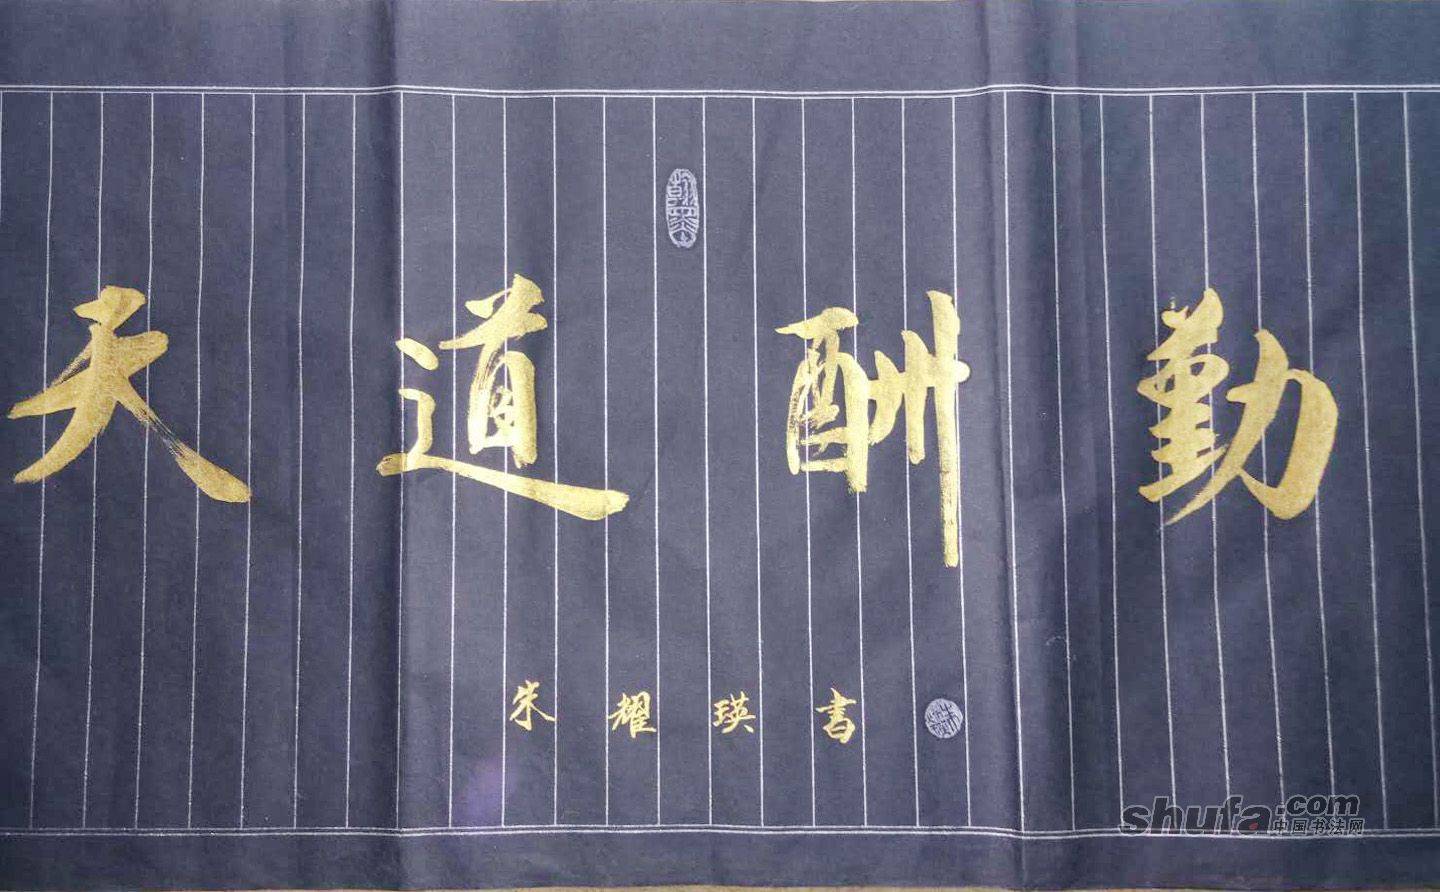 天道酬勤
朱耀瑛书
shufa.com
中国书法网